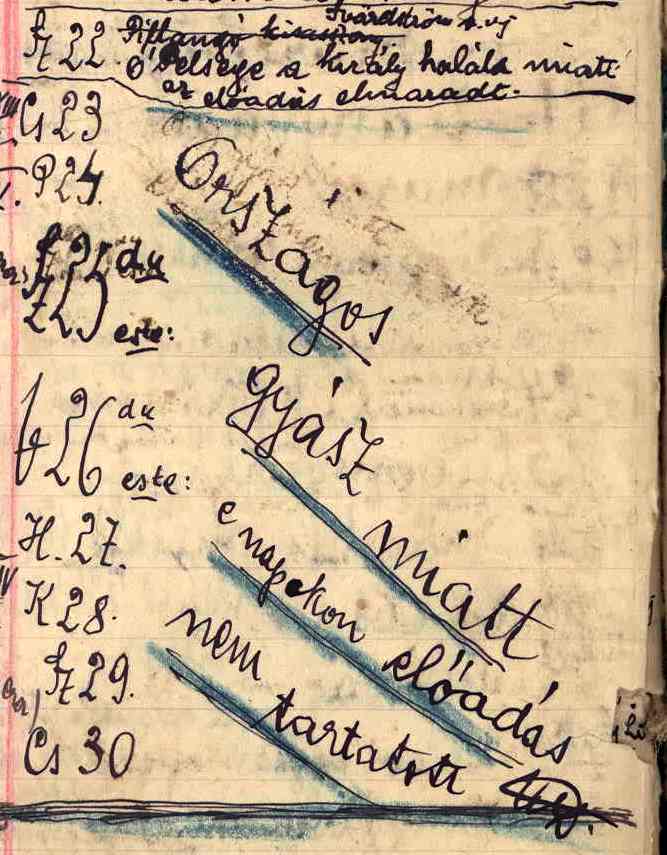 Svärdström
Sz 22. Pillangó kisasszony
Ő Felsége a király halála miatt
az előadás elmaradt.
Cs 23
P 24.
Sz 25 du
este:
V 26 du
este:
H. 27.
K 28.
Sz 29.
Cs 30
Országos
gyász
miatt
e napokon előadás
nem
tartatott